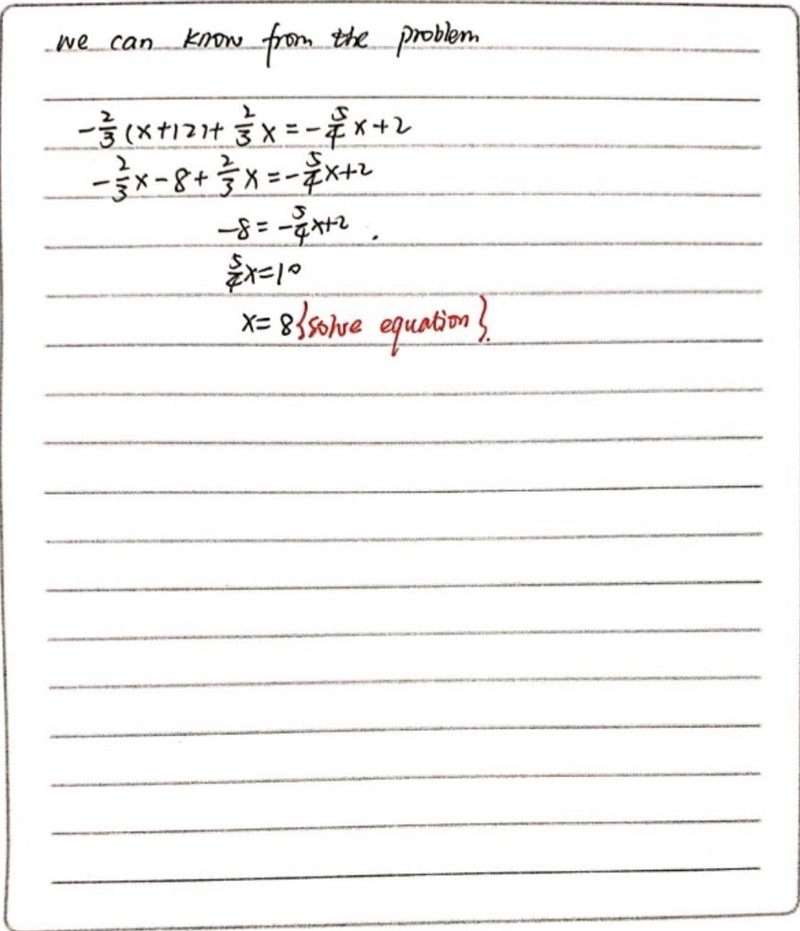 we can know from the problem
-2/3(x+12)+2/3x=-5/4x+2
-2/3x-8+2/3x=-5/4x+2
-8=-5/4x+2.
5/4x=10
x=8{solve equation}.